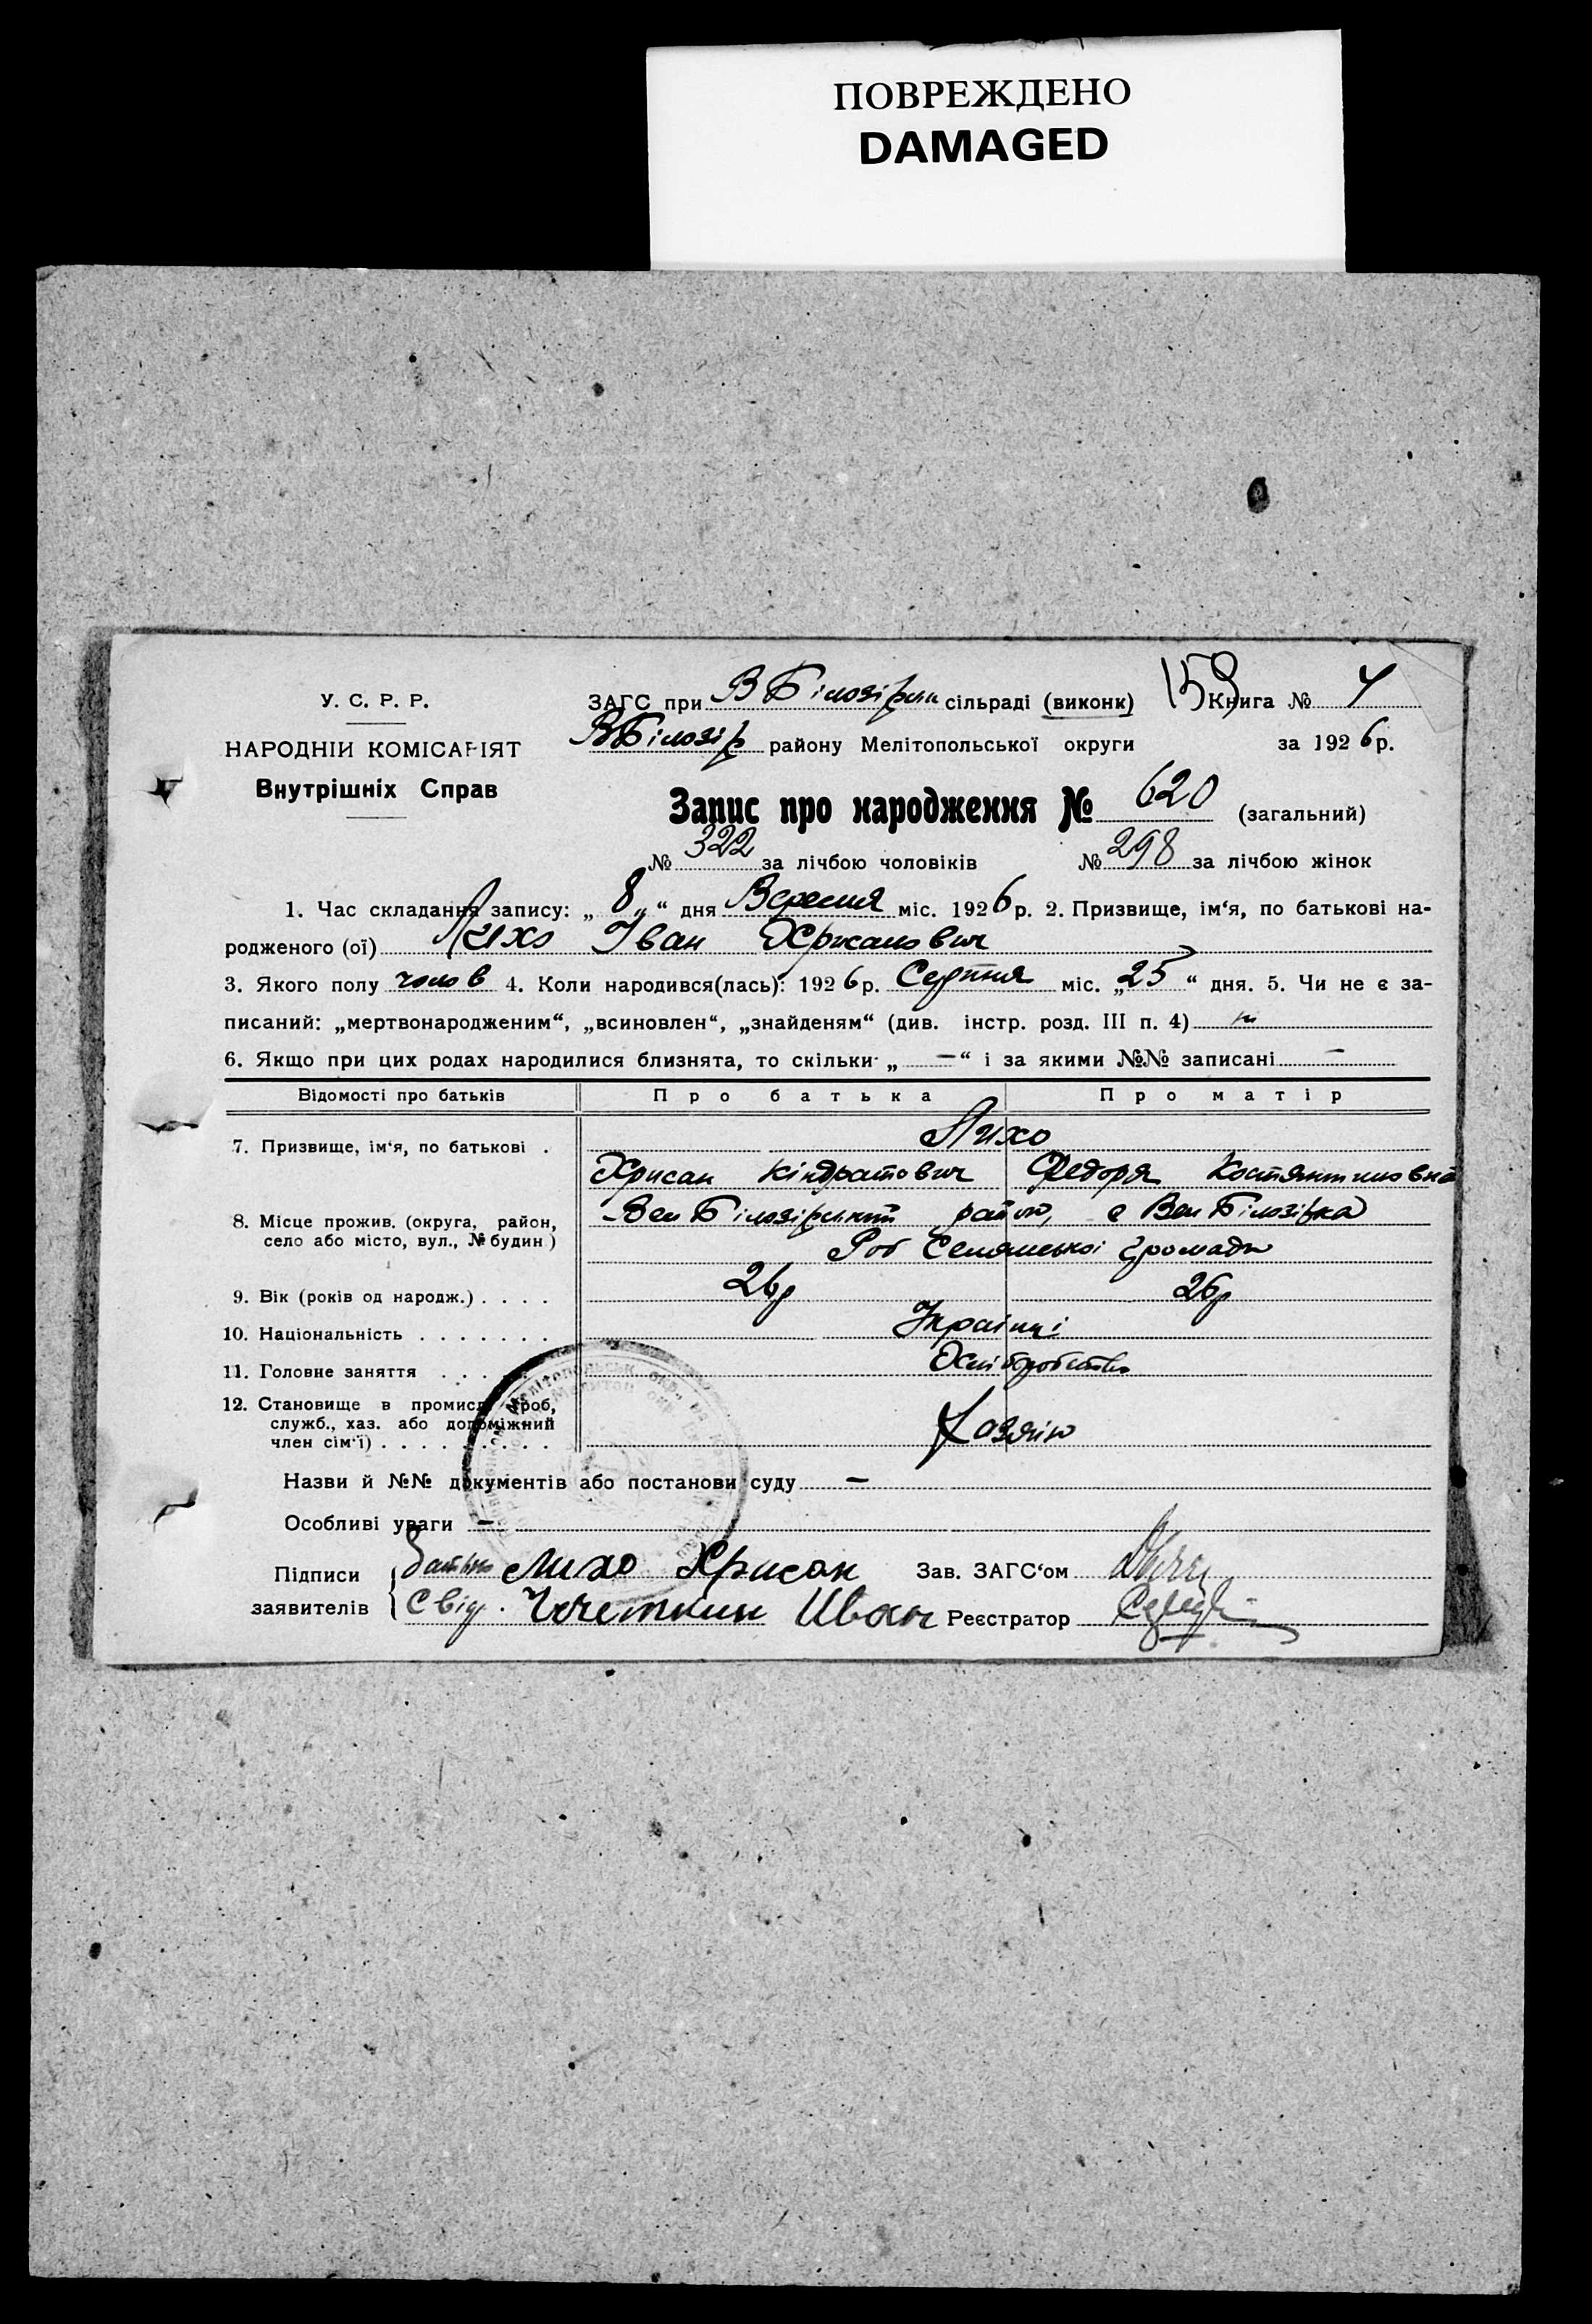 ПОВРЕЖДЕНО
DAMAGED
У. С. Р. Р.
НАРОДНІЙ КОМІСАРІЯТ
Внутрішніх Справ
ЗАГС при В Білозірськ сільраді (виконк) 159 Книга № 4
ВБілозір району Мелітопольської округи за 1926 р.
Запис про народження № 620 (загальний)
№ 322 за лічбою чоловіків № 298 за лічбою жінок
1. Час складання запису: „ 8 “ дня Вересня міс. 1926 р. 2. Призвище, ім‘я, по батькові на-
родженого (ої) Лихо Іван Хрисанович
3. Якого полу чолов 4. Коли народився(лась): 1926 р. Серпня міс. „ 25 “ дня. 5. Чи не є за-
писаний: „мертвонародженим“, „всиновлен“, „знайденям“ (див. інстр. розд. III п. 4) ні
6. Якщо при цих родах народилися близнята, то скільки „ — “ і за якими №№ записані —
Відомості про батьків Про батька Про матір
7. Призвище, ім‘я, по батькові . Лихо
Хрисан Кіндратович Федоря Костянтиновна
8. Місце прожив. (округа, район,
село або місто, вул., № будин.) Вел Білозірський район, с Вел Білозірка
Селянської громади
9. Вік (років од народж.) . . . . 26р 26р
10. Національність . . . . . . . Українці
11. Головне заняття . . . . Хліборобство
12. Становище в промисл. (роб,
служб., хаз. або допоміжний
член сім‘ї) . . . . . . . . . Хазяїн
Назви й №№ документів або постанови суду —
Особливі уваги —
Підписи Батько Лихо Хрисан Зав. ЗАГС‘ом
заявителів Свід. Иван Реєстратор